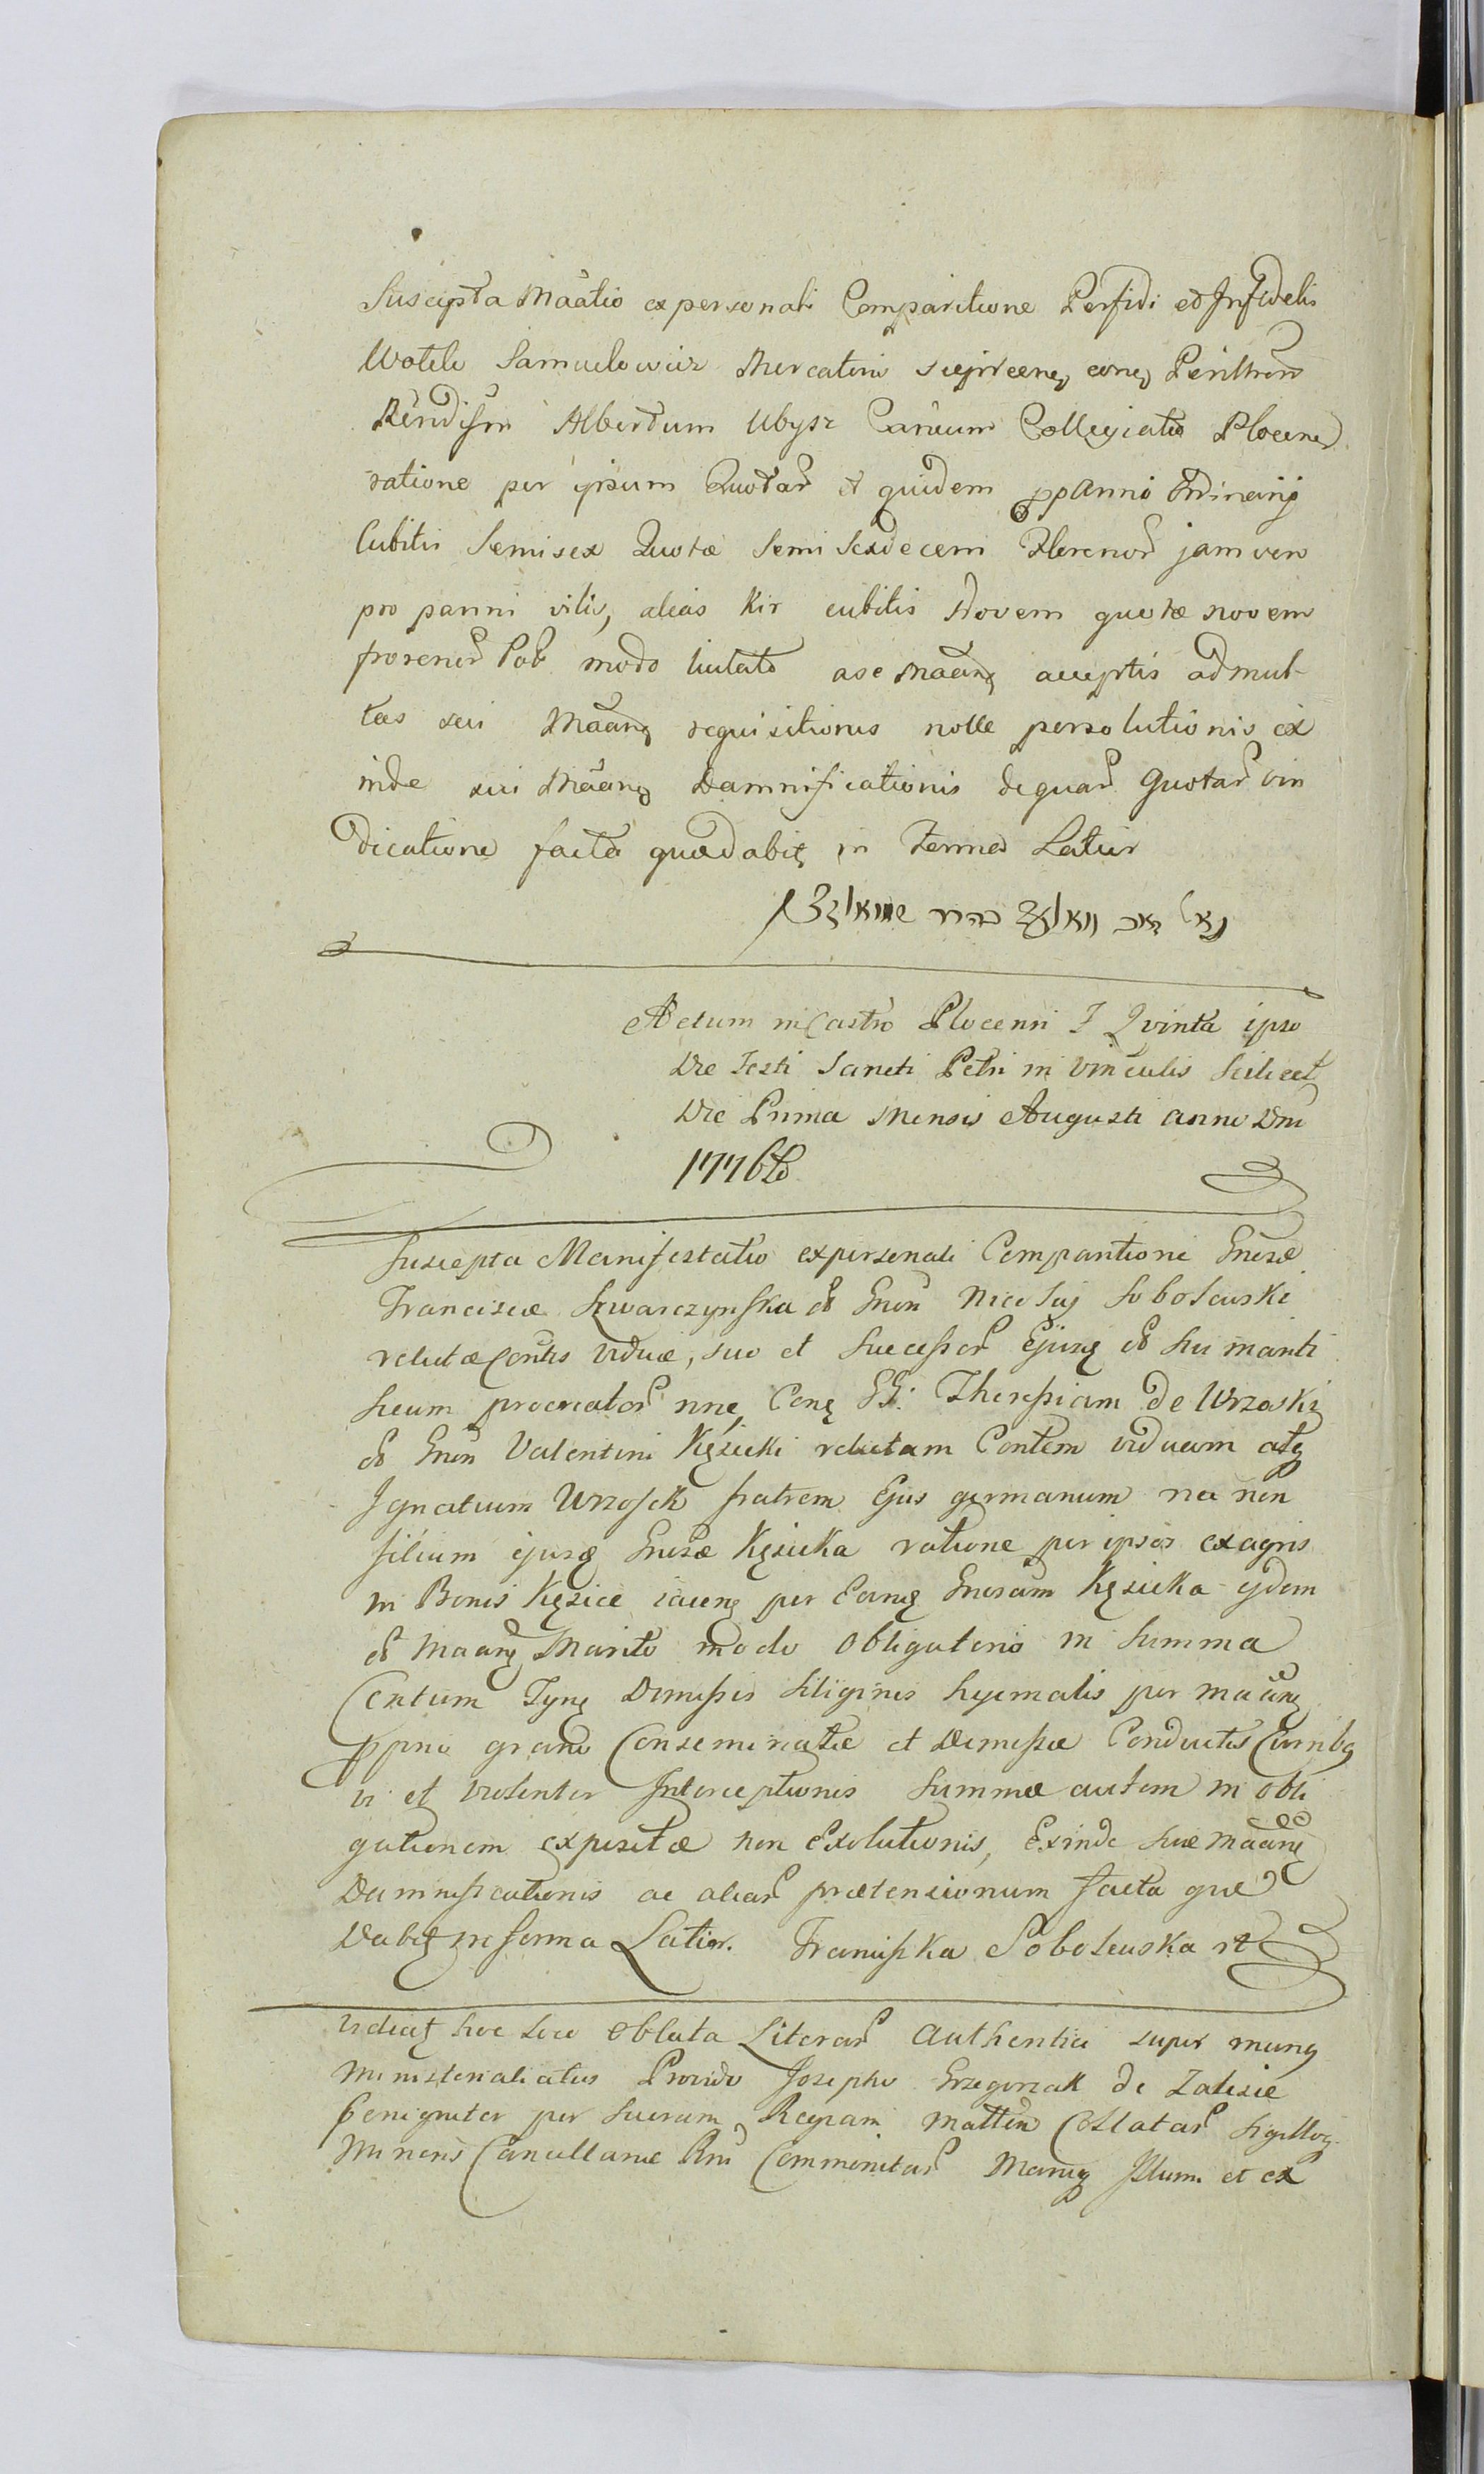 Suscepta Maãtio ex personali Comparitione Perfidi et Infidelis
Wolek Samuelowicz Mercatoris Sierpcen. conq. Perillrem
Rñdissm Albertum Ubysz Cancum Collegiatæ Plocens
ratione per ipsum Quotar et quidem pp anni Ordinarij
Cubitis Semisex Quotæ Semi Sexdecem Florenor jam vero
pro panni vilis, alias kir cubitis Novem quotæ novem
frorenor Pol modo a se Maãnte acceptis ad mul-
tas sui Maãntis requisitiones nolle persolutionis ex
inde sui Maãntis Damnificationis de quar Quotar vin
dicatione facta quæ dabit in Forma Latior
Actum in Castro Plocensi F Qvinta ipso
Die Festi Sancti Petri in Vinculis Scilicet
Die Prima Mensis Augusti anno Dni
1776to
Suscepta Manifestatio ex personali Comparitione Gnesæ
Franciscæ Szwarczynska olim Gnesi Nicolaj Sobolewski
relictæ Contis viduæ, suo et Successor Ejusq olim sui mariti
secum procreator nne, Conq GG: Theressiam de Wrzoski
olim Gnesi Valentini Kęsicki relictam Contem viduam atq
Ignatium Wrzosek fratrem Ejus germanum nec non
filium ejusq Gnesæ Kęsicka ratione per ipsos ex agris
in Bonis Kęsice iacen per Eanq Gnesam Kęsicka ejdem
olim Maãntis Marito modo Obligatorio in Summa
Centum Tynf Dimissis Siliginis hyemalis per Maãntem
pprio grano Conseminatæ et Demessæ Conductis Curribq
vi et violenter Interceptionis Summæ autem in obli
gationem expositæ non Exolutionis, Exinde suæ Maãntis
Damnificationis ac aliar prætensionum facta quæ
Dabit in forma Latior. Franciszka Sobolewska rt
Videat hoc loco Oblata Literar authenticar super munq
Ministerialiatus Provido Josepho Grzegorzak de Zalesie
benigniter per Sacram Regiam Mattem Collatar Sigilloq
Minoris Cancellariæ Rni Communitar Manuq Illum et ex